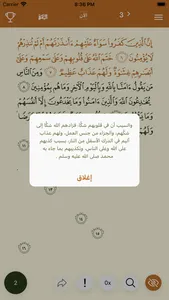 8:36 PM
3
الآن
إِنَّ ٱلَّذِينَ كَفَرُوا۟ سَوَآءٌ عَلَيْهِمْ ءَأَنذَرْتَهُمْ أَمْ لَمْ تُنذِرْهُمْ
لَا يُؤْمِنُونَ ٦ خَتَمَ ٱللَّهُ عَلَىٰ قُلُوبِهِمْ وَعَلَىٰ سَمْعِهِمْ وَعَلَىٰٓ
أَبْصَٰرِهِمْ غِشَٰوَةٌ وَلَهُمْ عَذَابٌ عَظِيمٌ ٧ وَمِنَ ٱلنَّاسِ
مَن يَقُولُ ءَامَنَّا بِٱللَّهِ وَبِٱلْيَوْمِ ٱلْءَاخِرِ وَمَا هُم بِمُؤْمِنِينَ ٨
يُخَٰدِعُونَ ٱللَّهَ وَٱلَّذِينَ ءَامَنُوا۟ وَمَا يَخْدَعُونَ إِلَّآ
والسبب أن في قلوبهم شكًّا، فزادهم الله شكًّا إلى
شكِّهم، والجزاء من جنس العمل، ولهم عذاب
أليم في الدرك الأسفل من النار، بسبب كذبهم
على الله وعلى الناس، وتكذيبهم بما جاء به
محمد صلى الله عليه وسلم .
إغلاق
2
!
0x